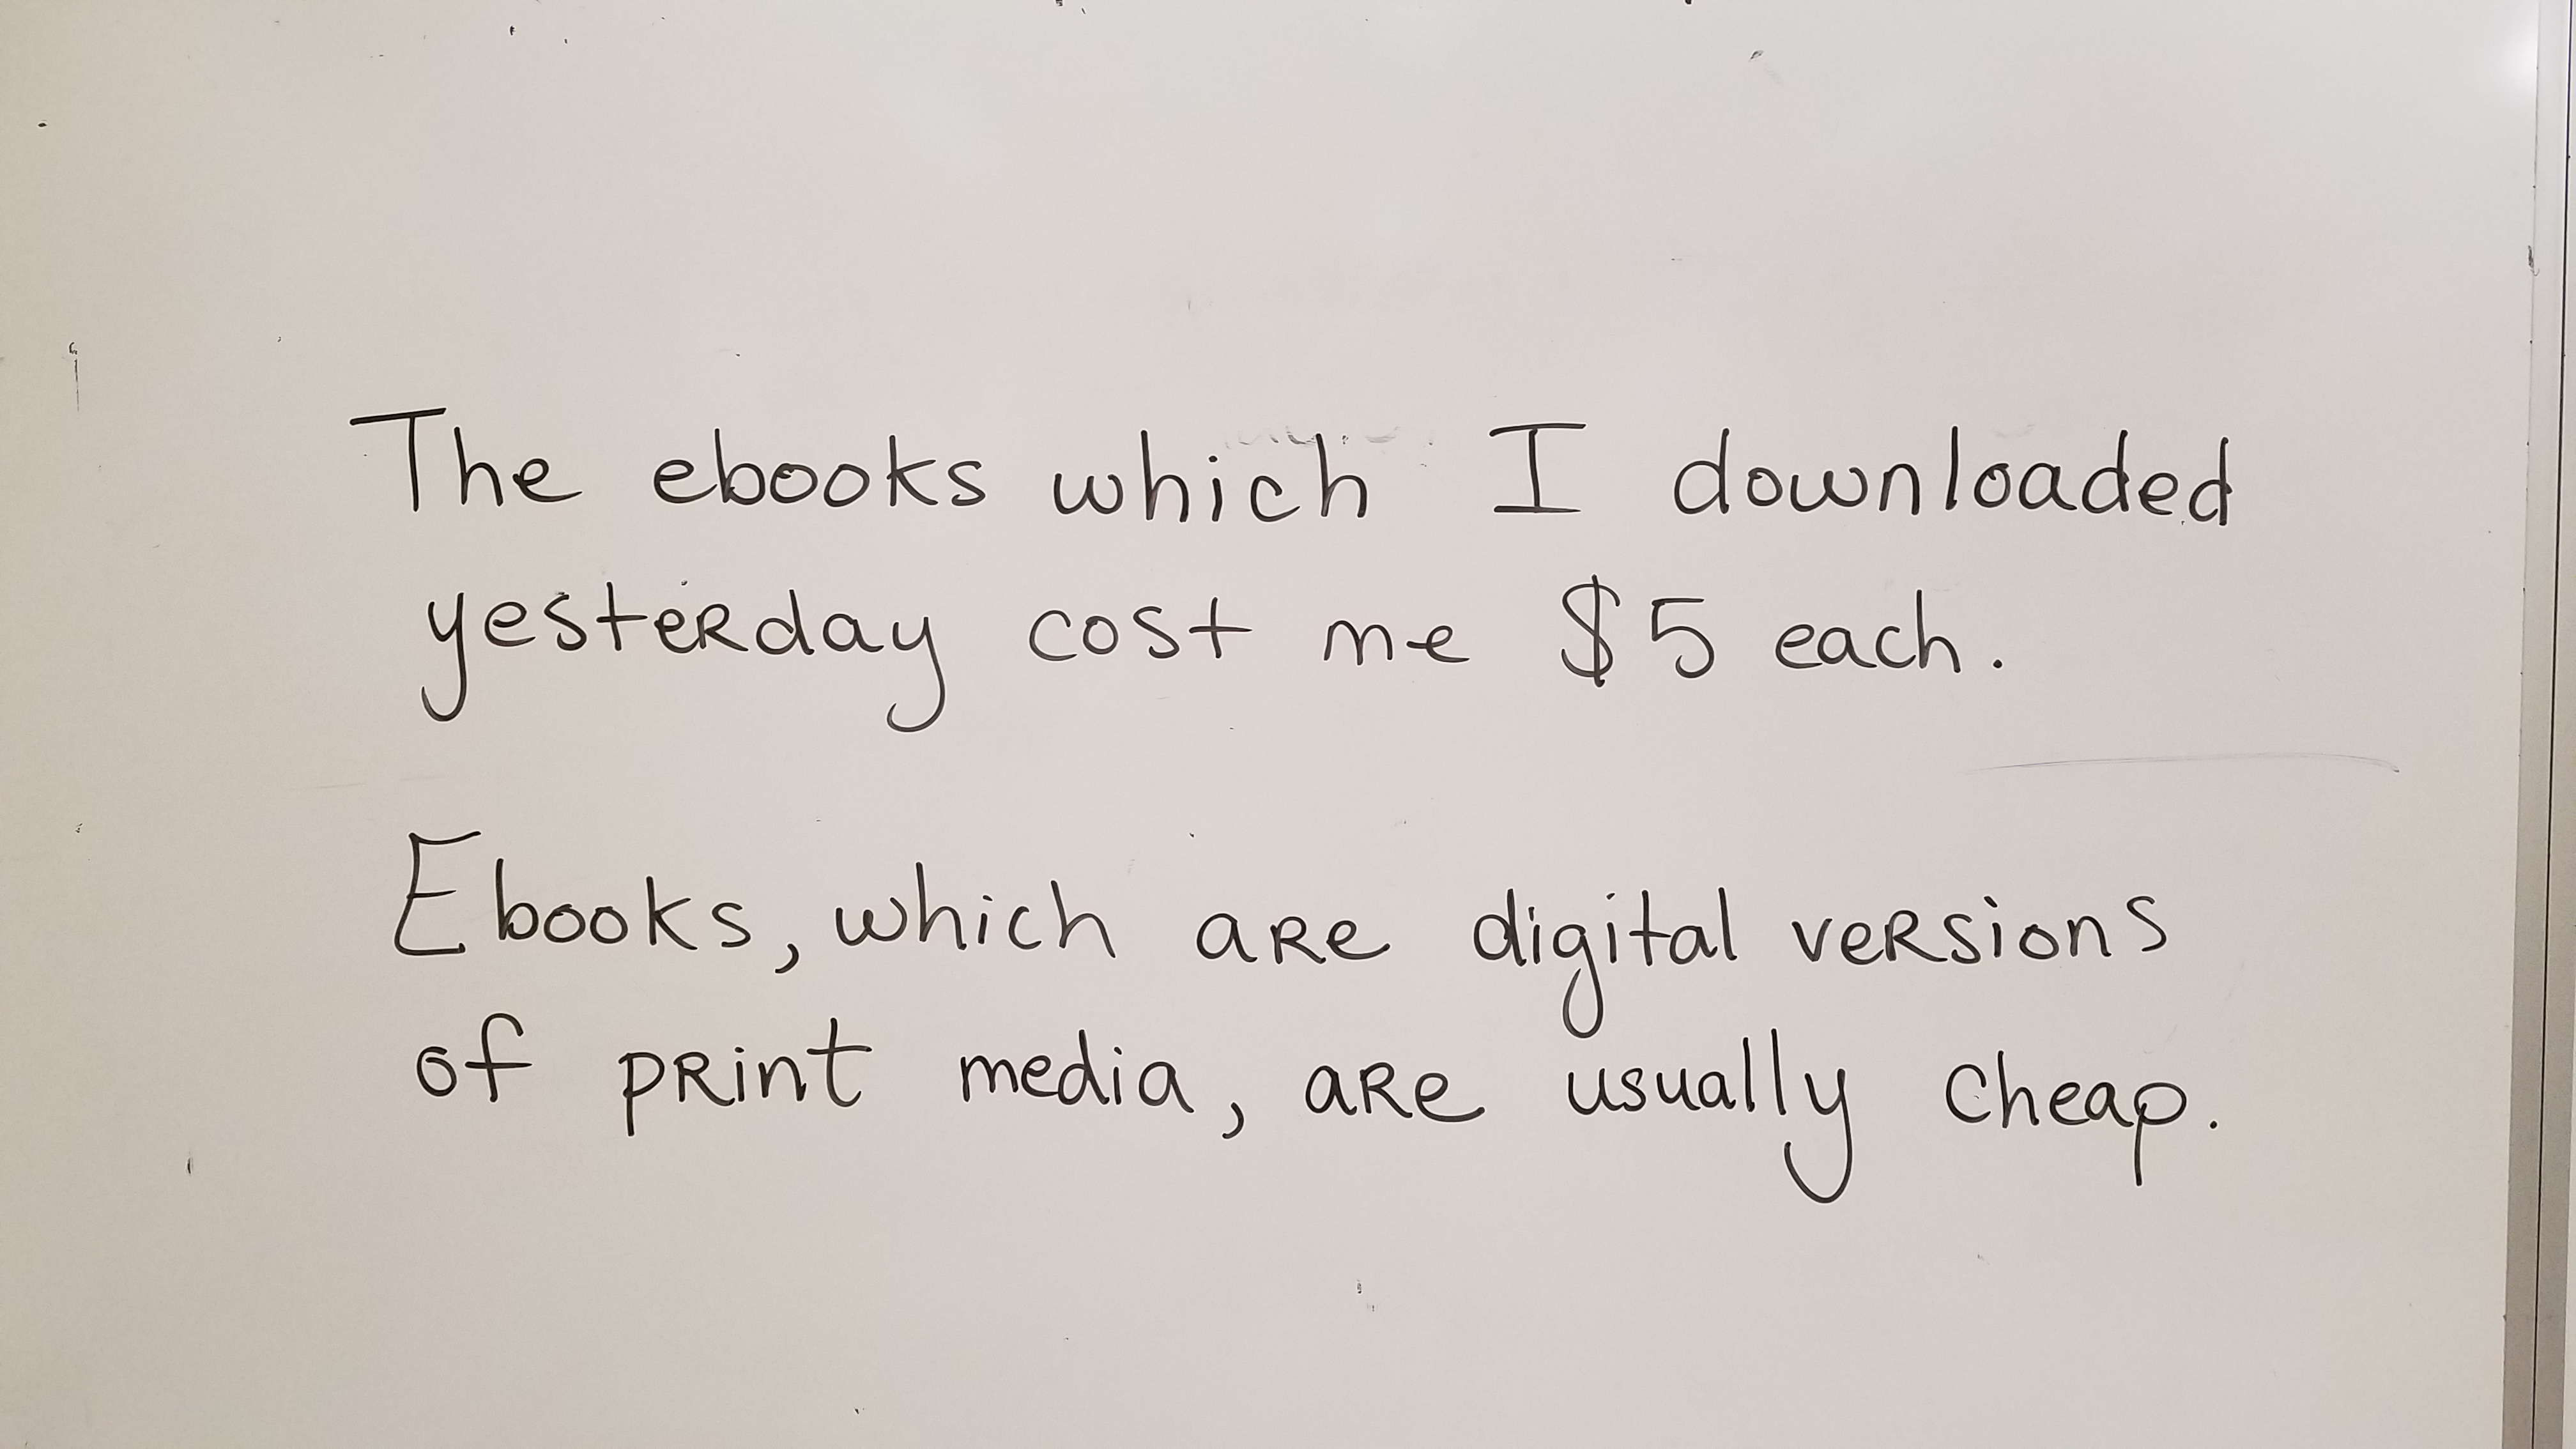 The ebooks which I downloaded
yesterday cost me $5 each.
Ebooks, which are digital versions
of print media, are usually cheap.